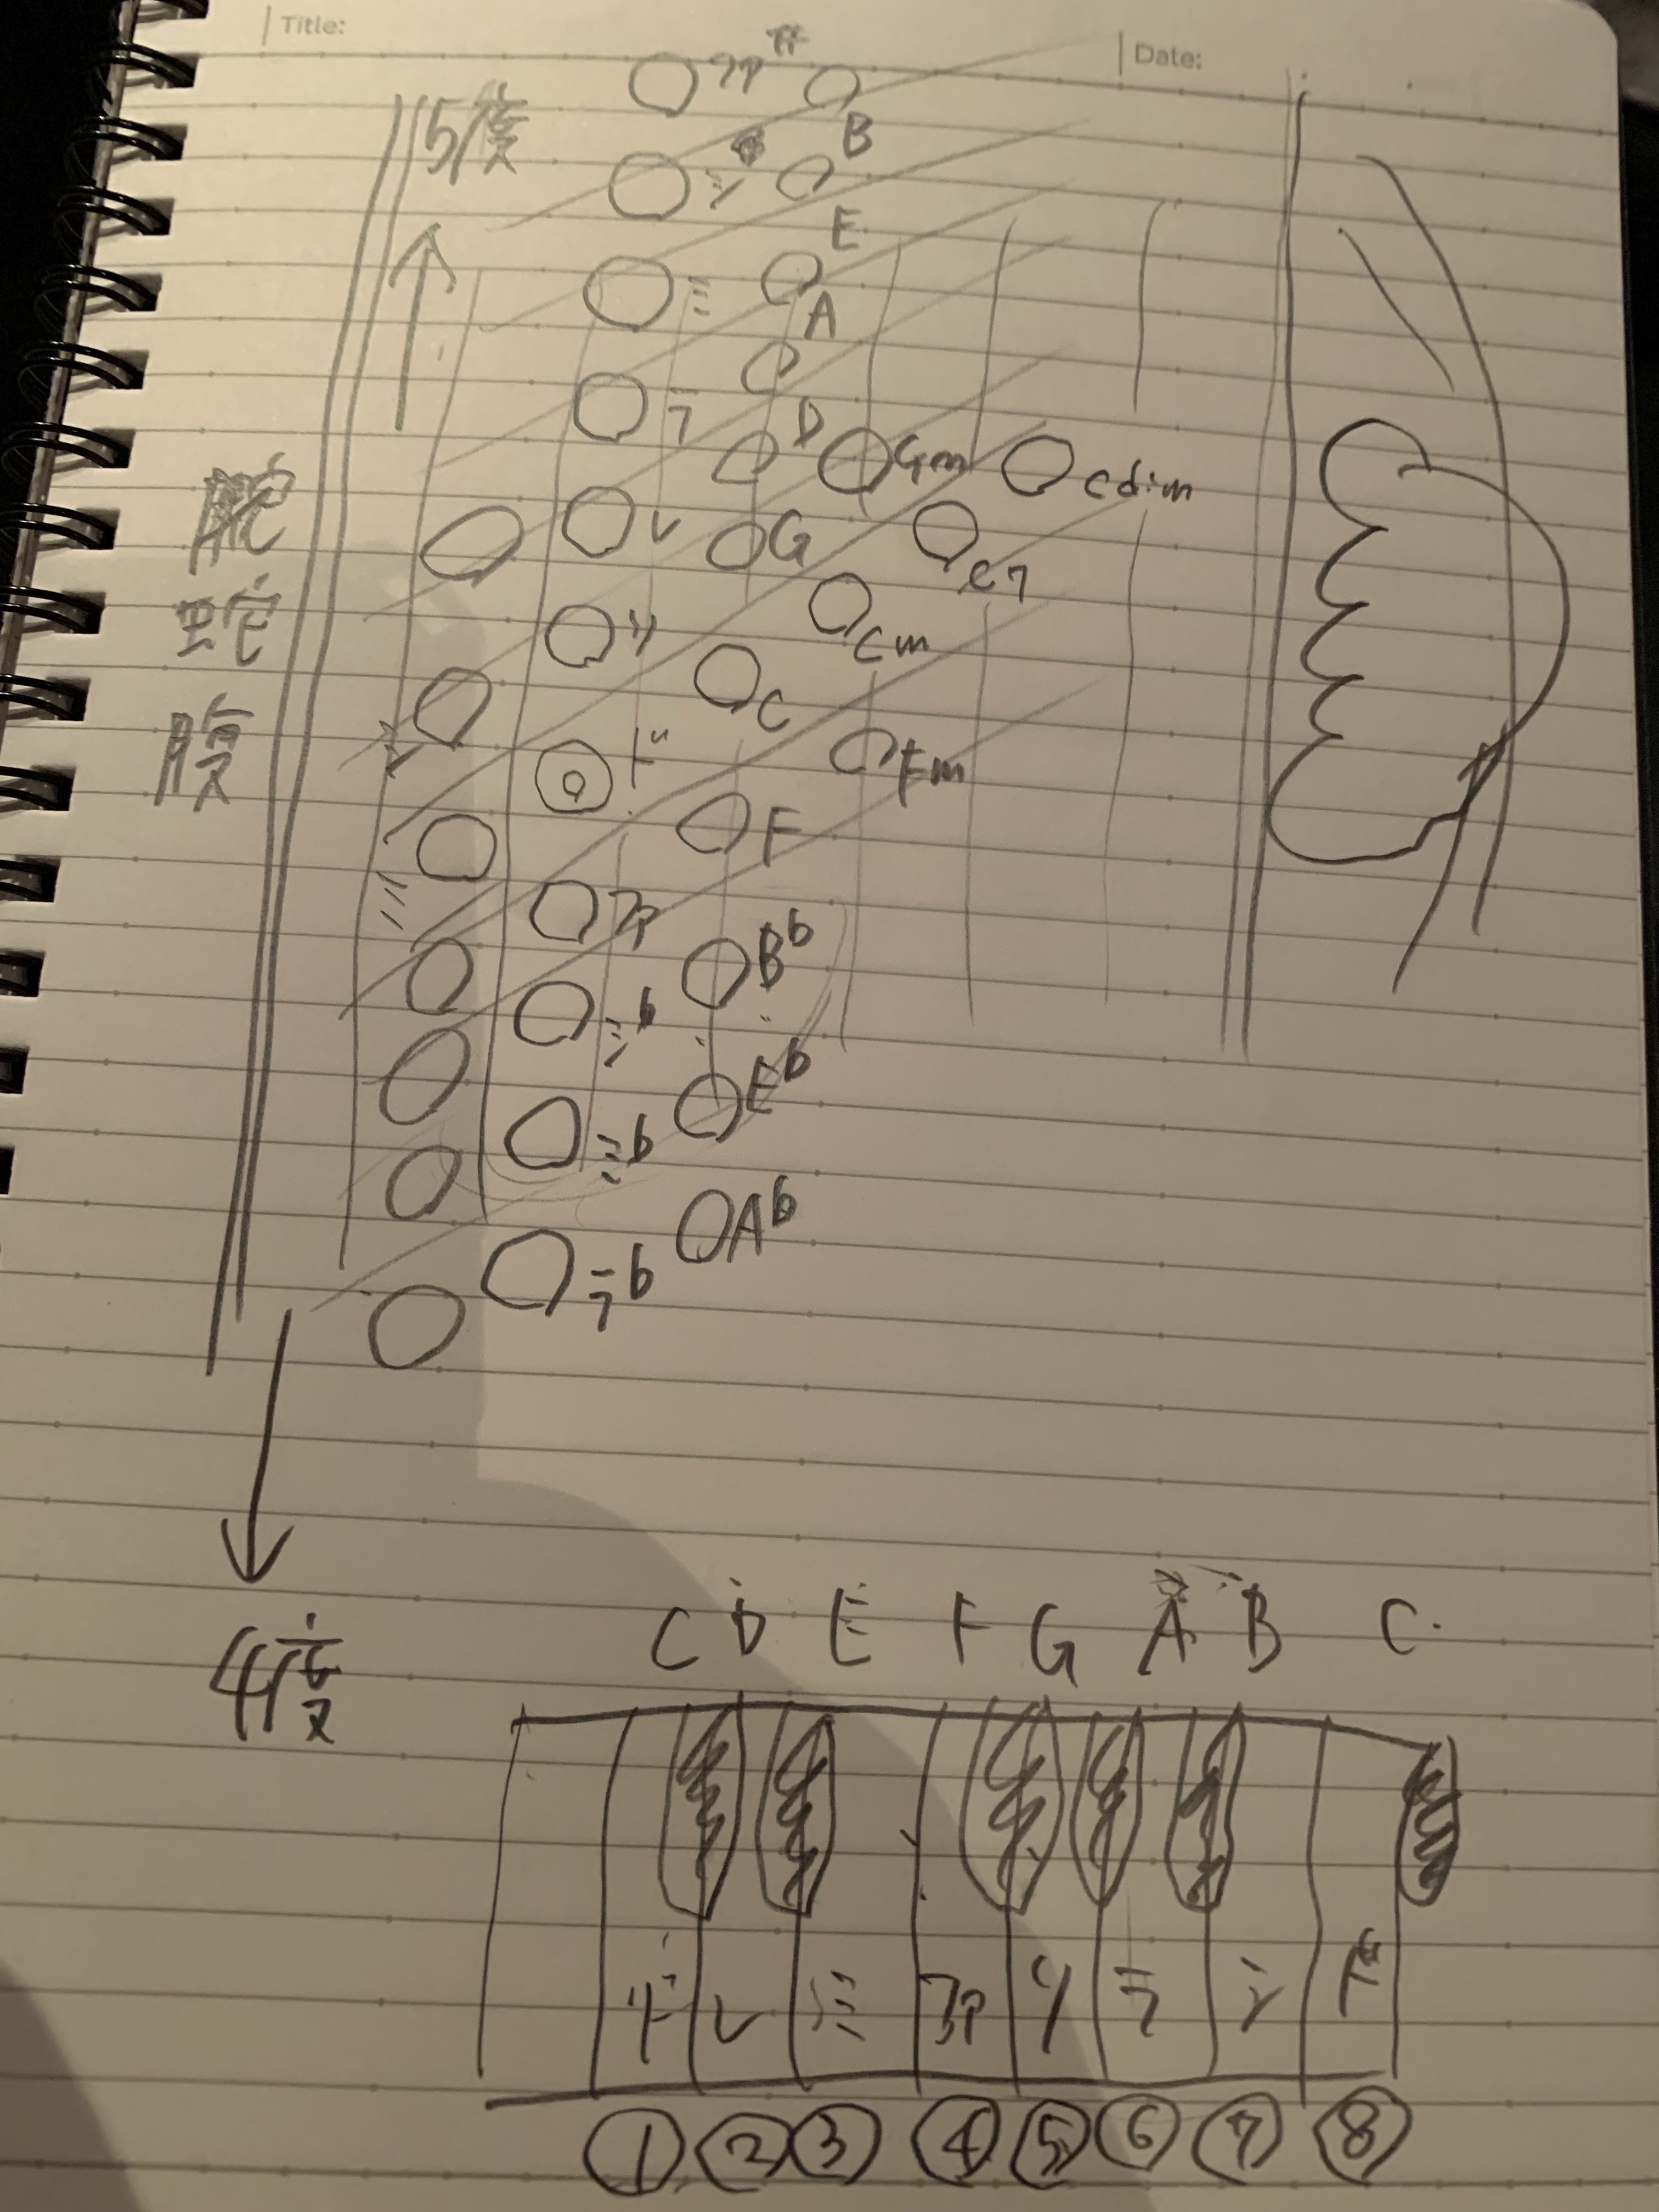 Title:
Date:
5度
ファ#
シ
B
ミ
E
A
ラ
D
Gm
Cdim
レ
G
C7
蛇
ソ
Cm
腹
C
ド
Fm
F
ミ
ファ
Bb
シb
Eb
ミb
Ab
ラb
4度
C D E F G A B C
ド レ ミ ファ ソ ラ シ ド
① ② ③ ④ ⑤ ⑥ ⑦ ⑧